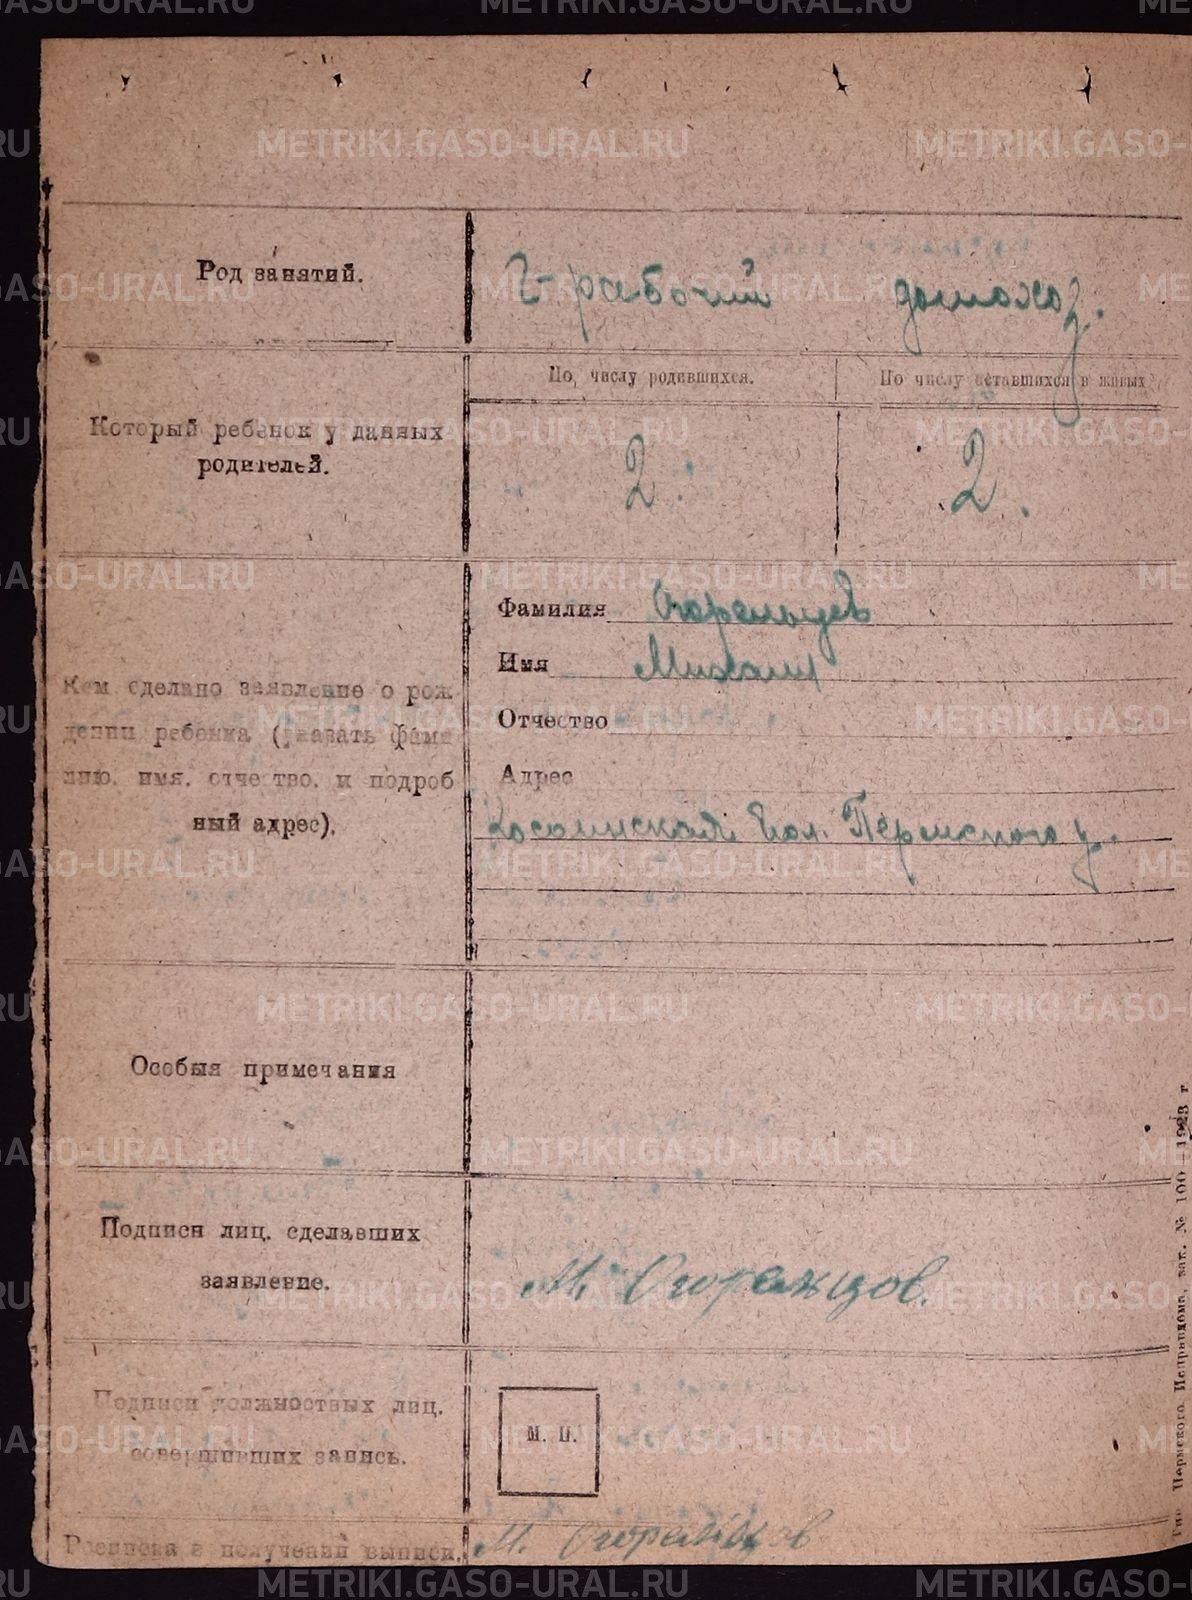 METRIKI.GASO-URAL.RU
Род занятий.
рабочий
домохоз.
По числу родившихся.
По числу оставшихся в живых
Который ребенок у данных
родителей.
2.
2.
Фамилия Огорельцев
Имя Михаил
Отчество
Адрес
вол. Пермского у.
Кем сделано заявление о рож
дении ребенка (указать фами
лию. имя. отчество. и подроб
ный адрес).
Особыя примечания
Подписи лиц. сделавших
заявление.
М. Огорельцов.
Подписи должностных лиц.
совершивших запись.
М. П.
Росписка в получении выписи.
М. Огорельцов
Тип. Пермского Исправдома, зак. № 100—1923 г